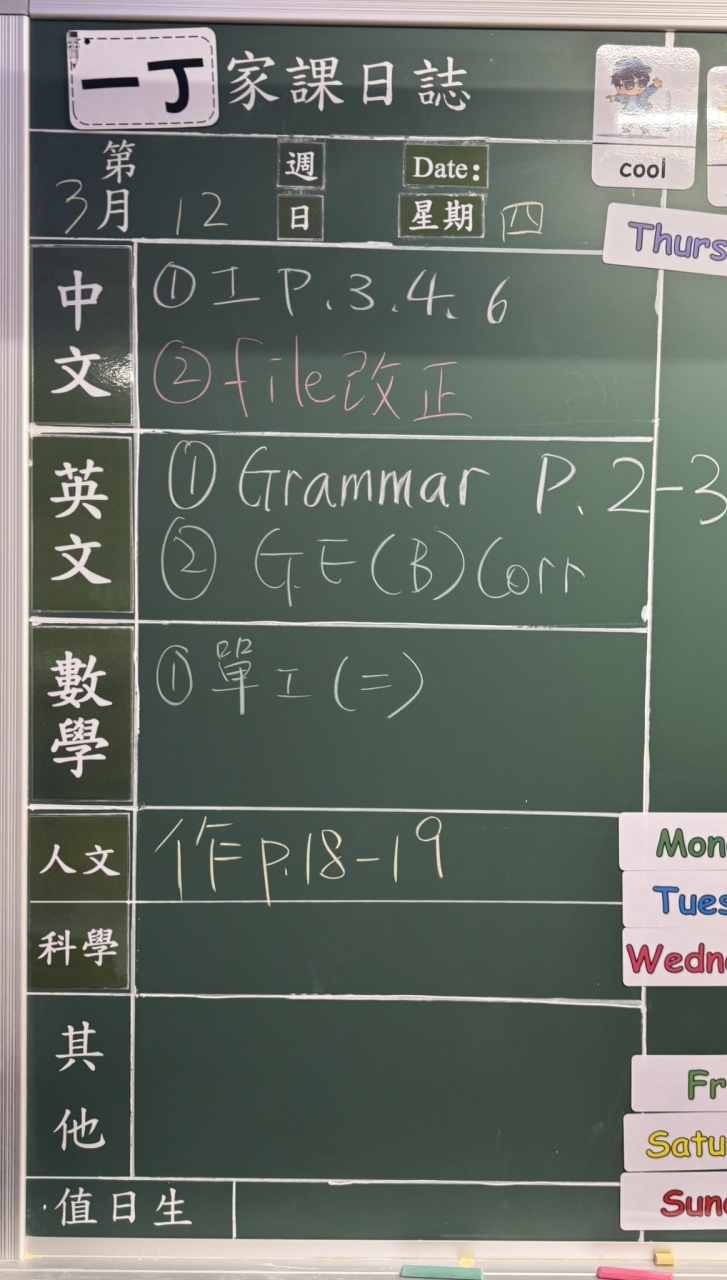 一丁 家課日誌
cool
第 週 Date:
3月 12 日 星期 四
Thurs
中文
①工 P.3.4.6
②file改正
英文
①Grammar P.2-3
②GE(B)Corr
數學
①單工(二)
人文
作p.18-19
科學
其他
值日生
Mon
Tues
Wedn
Fr
Satu
Sun